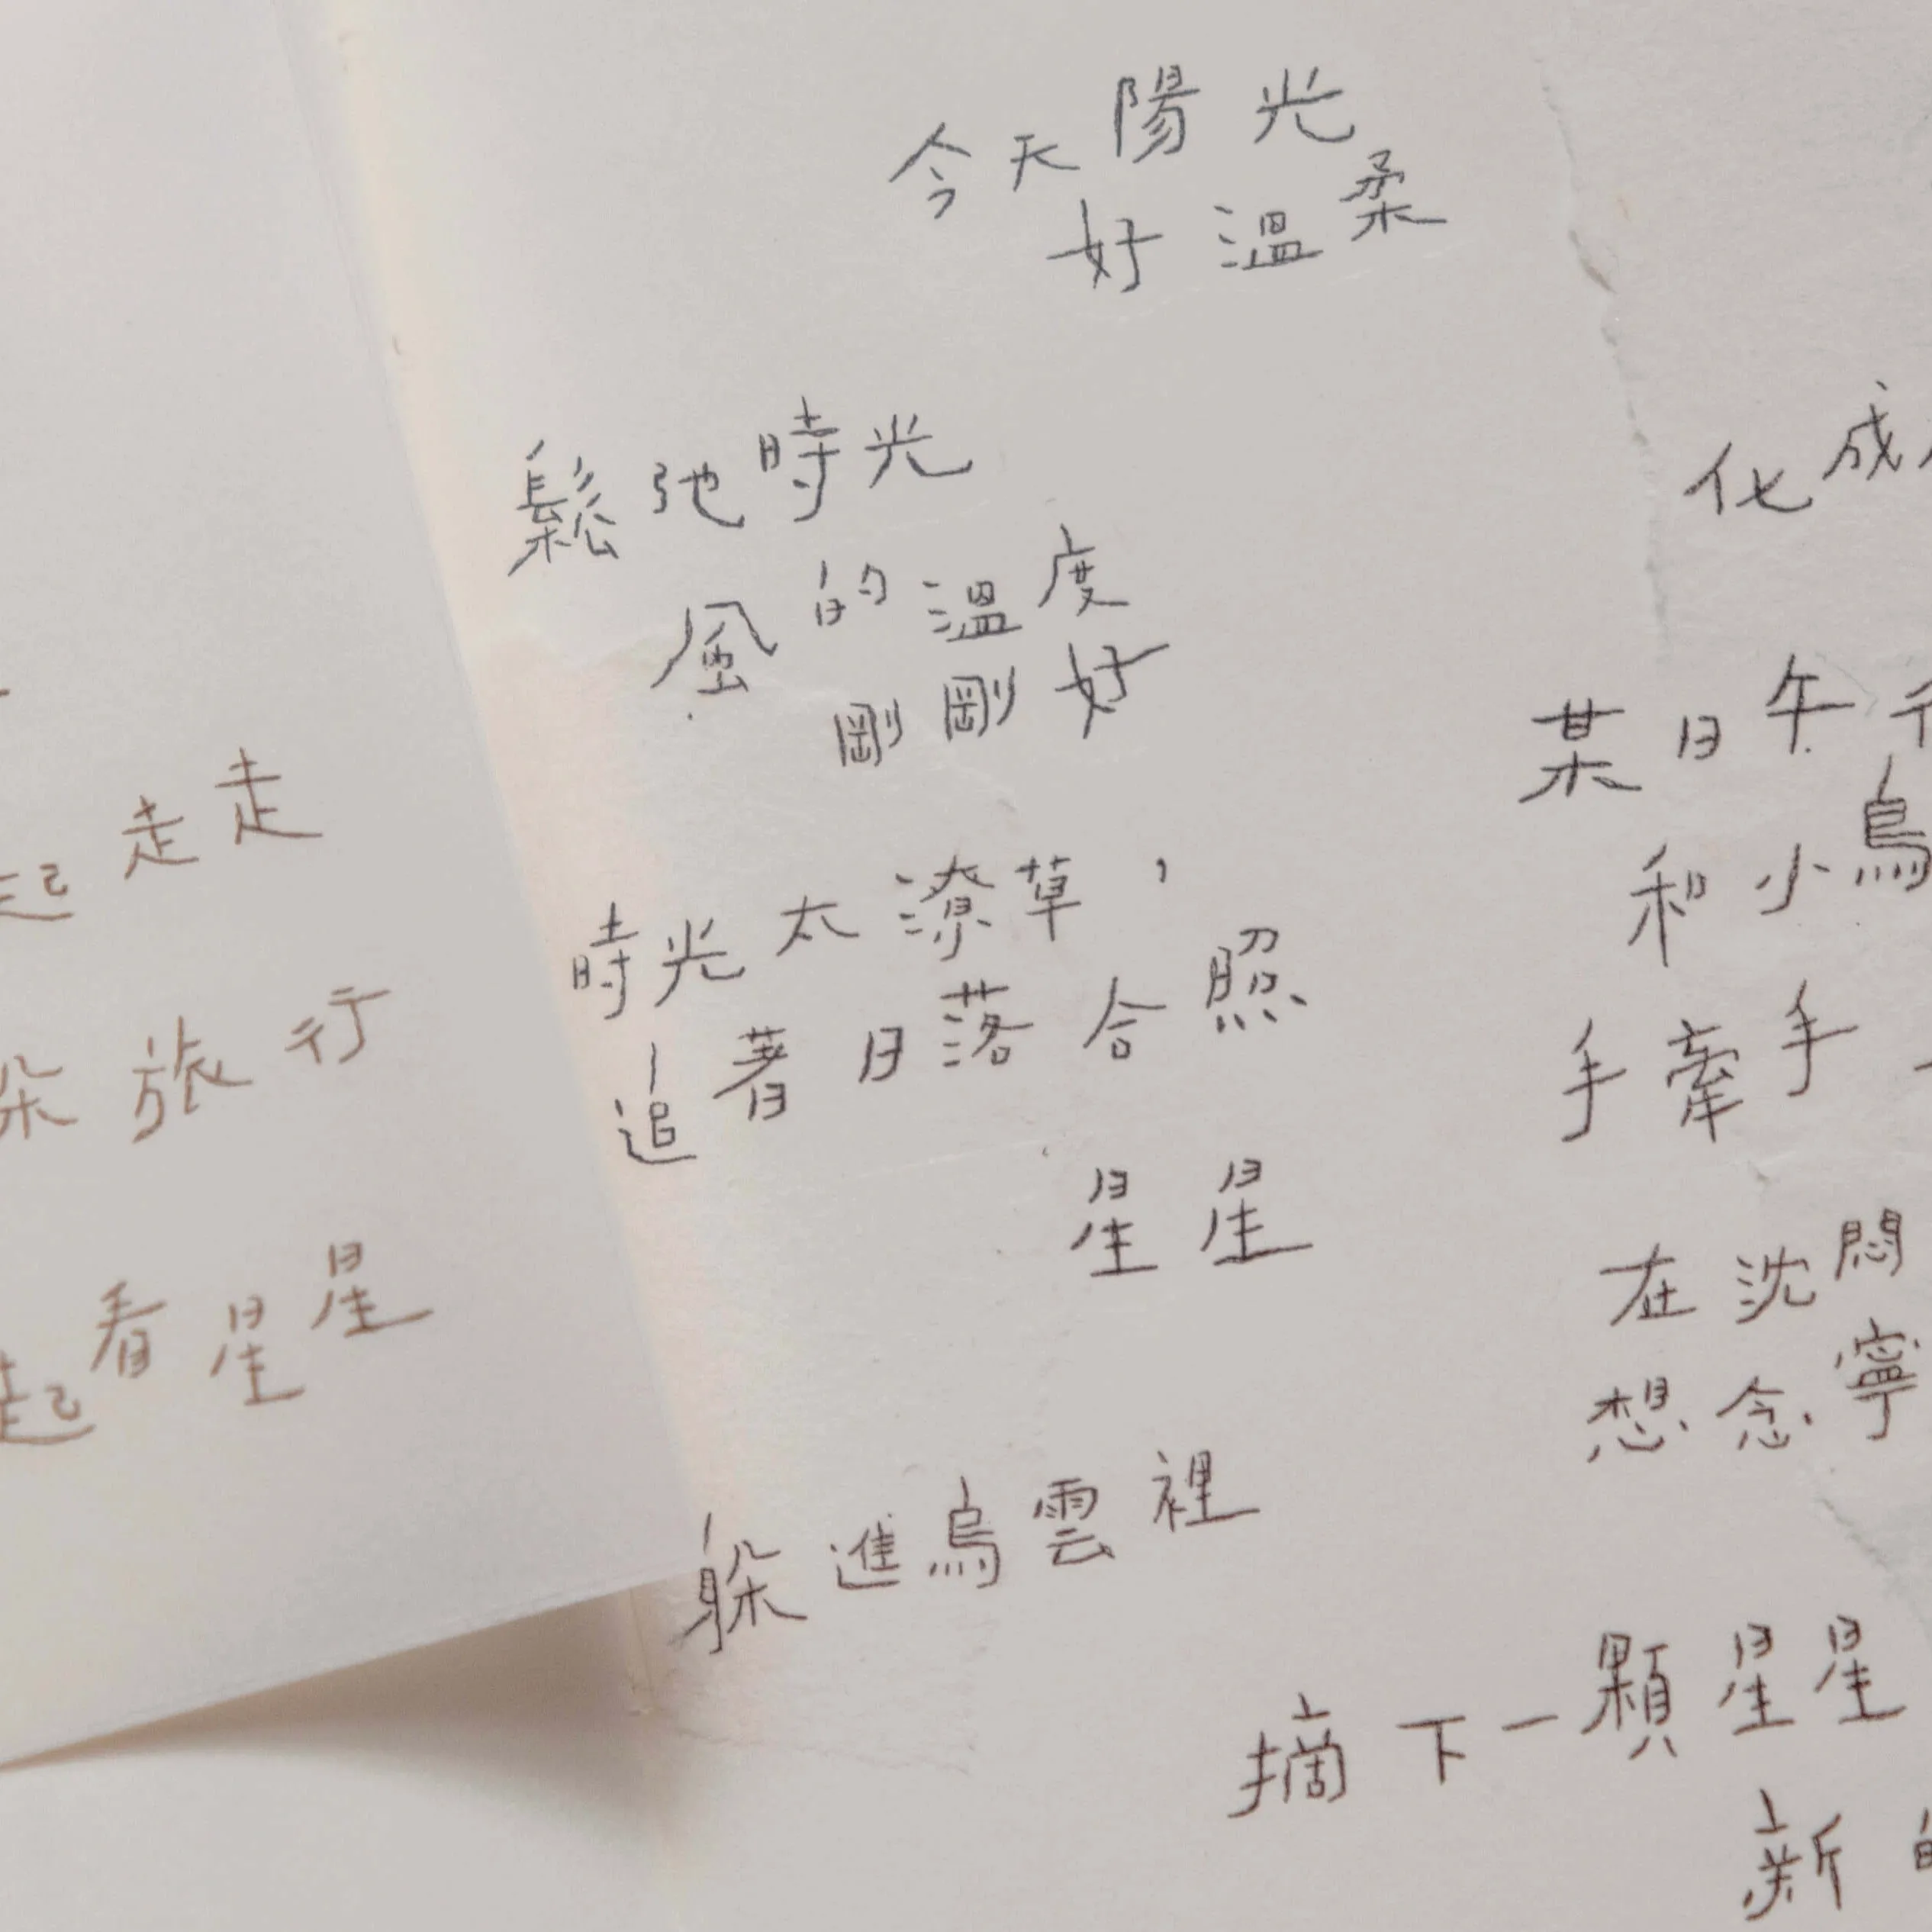 今天陽光
好溫柔
鬆弛時光
風的溫度
剛剛好
時光太潦草，
追著日落合照
星星
躲進烏雲裡
起走走
朵旅行
起看星星
化成
某日午
和小鳥
手牽手
在沈悶
想念寧
摘下一顆星星
新